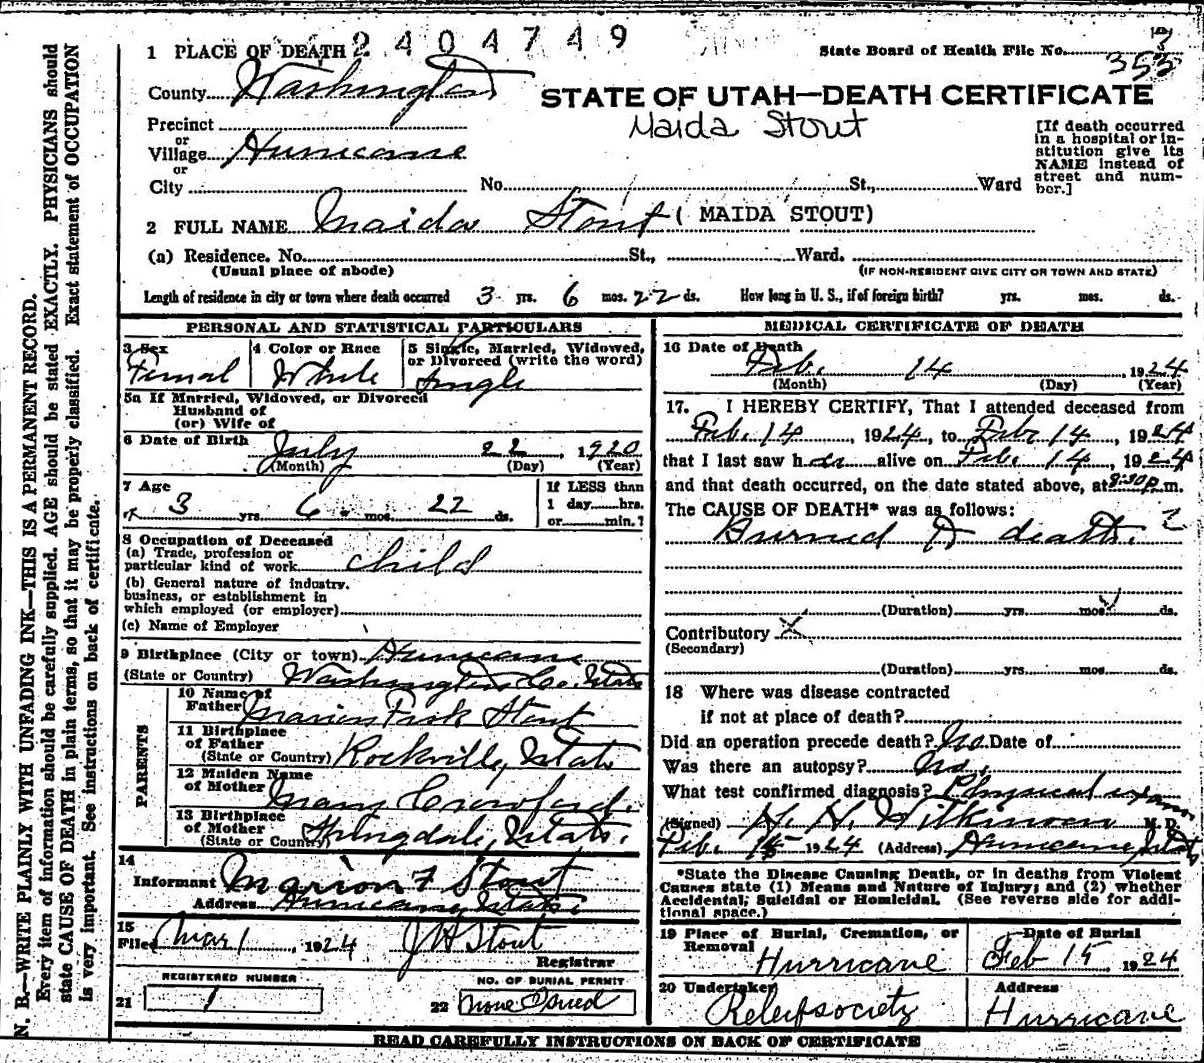 2404749
1 PLACE OF DEATH
State Board of Health File No. 353
County Washington
STATE OF UTAH—DEATH CERTIFICATE
Maida Stout
Precinct
or
Village Hurricane
or
City No. St., Ward
[If death occurred in a hospital or institution give its NAME instead of street and number.]
2 FULL NAME Maida Stout (MAIDA STOUT)
(a) Residence. No. St., Ward.
(Usual place of abode) (IF NON-RESIDENT GIVE CITY OR TOWN AND STATE)
Length of residence in city or town where death occurred 3 yrs. 6 mos. 22 ds. How long in U. S., if of foreign birth? yrs. mos. ds.
PERSONAL AND STATISTICAL PARTICULARS
3 Sex
Femal
4 Color or Race
White
5 Single, Married, Widowed, or Divorced (write the word)
Single
5a If Married, Widowed, or Divorced
Husband of
(or) Wife of
6 Date of Birth July 22, 1920
(Month) (Day) (Year)
7 Age
3 yrs. 6 mos. 22 ds.
If LESS than
1 day.....hrs.
or.....min.?
8 Occupation of Deceased
(a) Trade, profession or
particular kind of work child
(b) General nature of industry,
business, or establishment in
which employed (or employer)
(c) Name of Employer
9 Birthplace (City or town) Hurricane
(State or Country) Washington Co. Utah
PARENTS
10 Name of
Father Marion Fisk Stout
11 Birthplace
of Father
(State or Country) Rockville, Utah
12 Maiden Name
of Mother Mary Crawford.
13 Birthplace
of Mother
(State or Country) Springdale, Utah.
14
Informant Marion F Stout
Address Hurricane, Utah.
15
Filed Mar 1, 1924 J H Stout
Registrar
REGISTERED NUMBER
21 1
NO. OF BURIAL PERMIT
22 None Issued
MEDICAL CERTIFICATE OF DEATH
16 Date of Death
Feb. 14 1924
(Month) (Day) (Year)
17. I HEREBY CERTIFY, That I attended deceased from
Feb. 14, 1924, to Feb. 14, 1924
that I last saw her alive on Feb. 14, 1924
and that death occurred, on the date stated above, at 8:30 p.m.
The CAUSE OF DEATH* was as follows:
Burned to death.
(Duration) yrs. mos. ds.
Contributory
(Secondary)
(Duration) yrs. mos. ds.
18 Where was disease contracted
if not at place of death?
Did an operation precede death? No. Date of
Was there an autopsy? No.
What test confirmed diagnosis? Physical exam
(Signed) H. H. Wilkinson M. D.
Feb. 1924 (Address) Hurricane, Utah
*State the Disease Causing Death, or in deaths from Violent
Causes state (1) Means and Nature of Injury; and (2) whether
Accidental, Suicidal or Homicidal. (See reverse side for additional space.)
19 Place of Burial, Cremation, or
Removal
Hurricane
Date of Burial
Feb 15, 1924
20 Undertaker
Releif society
Address
Hurricane
READ CAREFULLY INSTRUCTIONS ON BACK OF CERTIFICATE
N. B.—WRITE PLAINLY WITH UNFADING INK—THIS IS A PERMANENT RECORD.
Every item of information should be carefully supplied. AGE should be stated EXACTLY. PHYSICIANS should
state CAUSE OF DEATH in plain terms, so that it may be properly classified. Exact statement of OCCUPATION
is very important. See instructions on back of certificate.